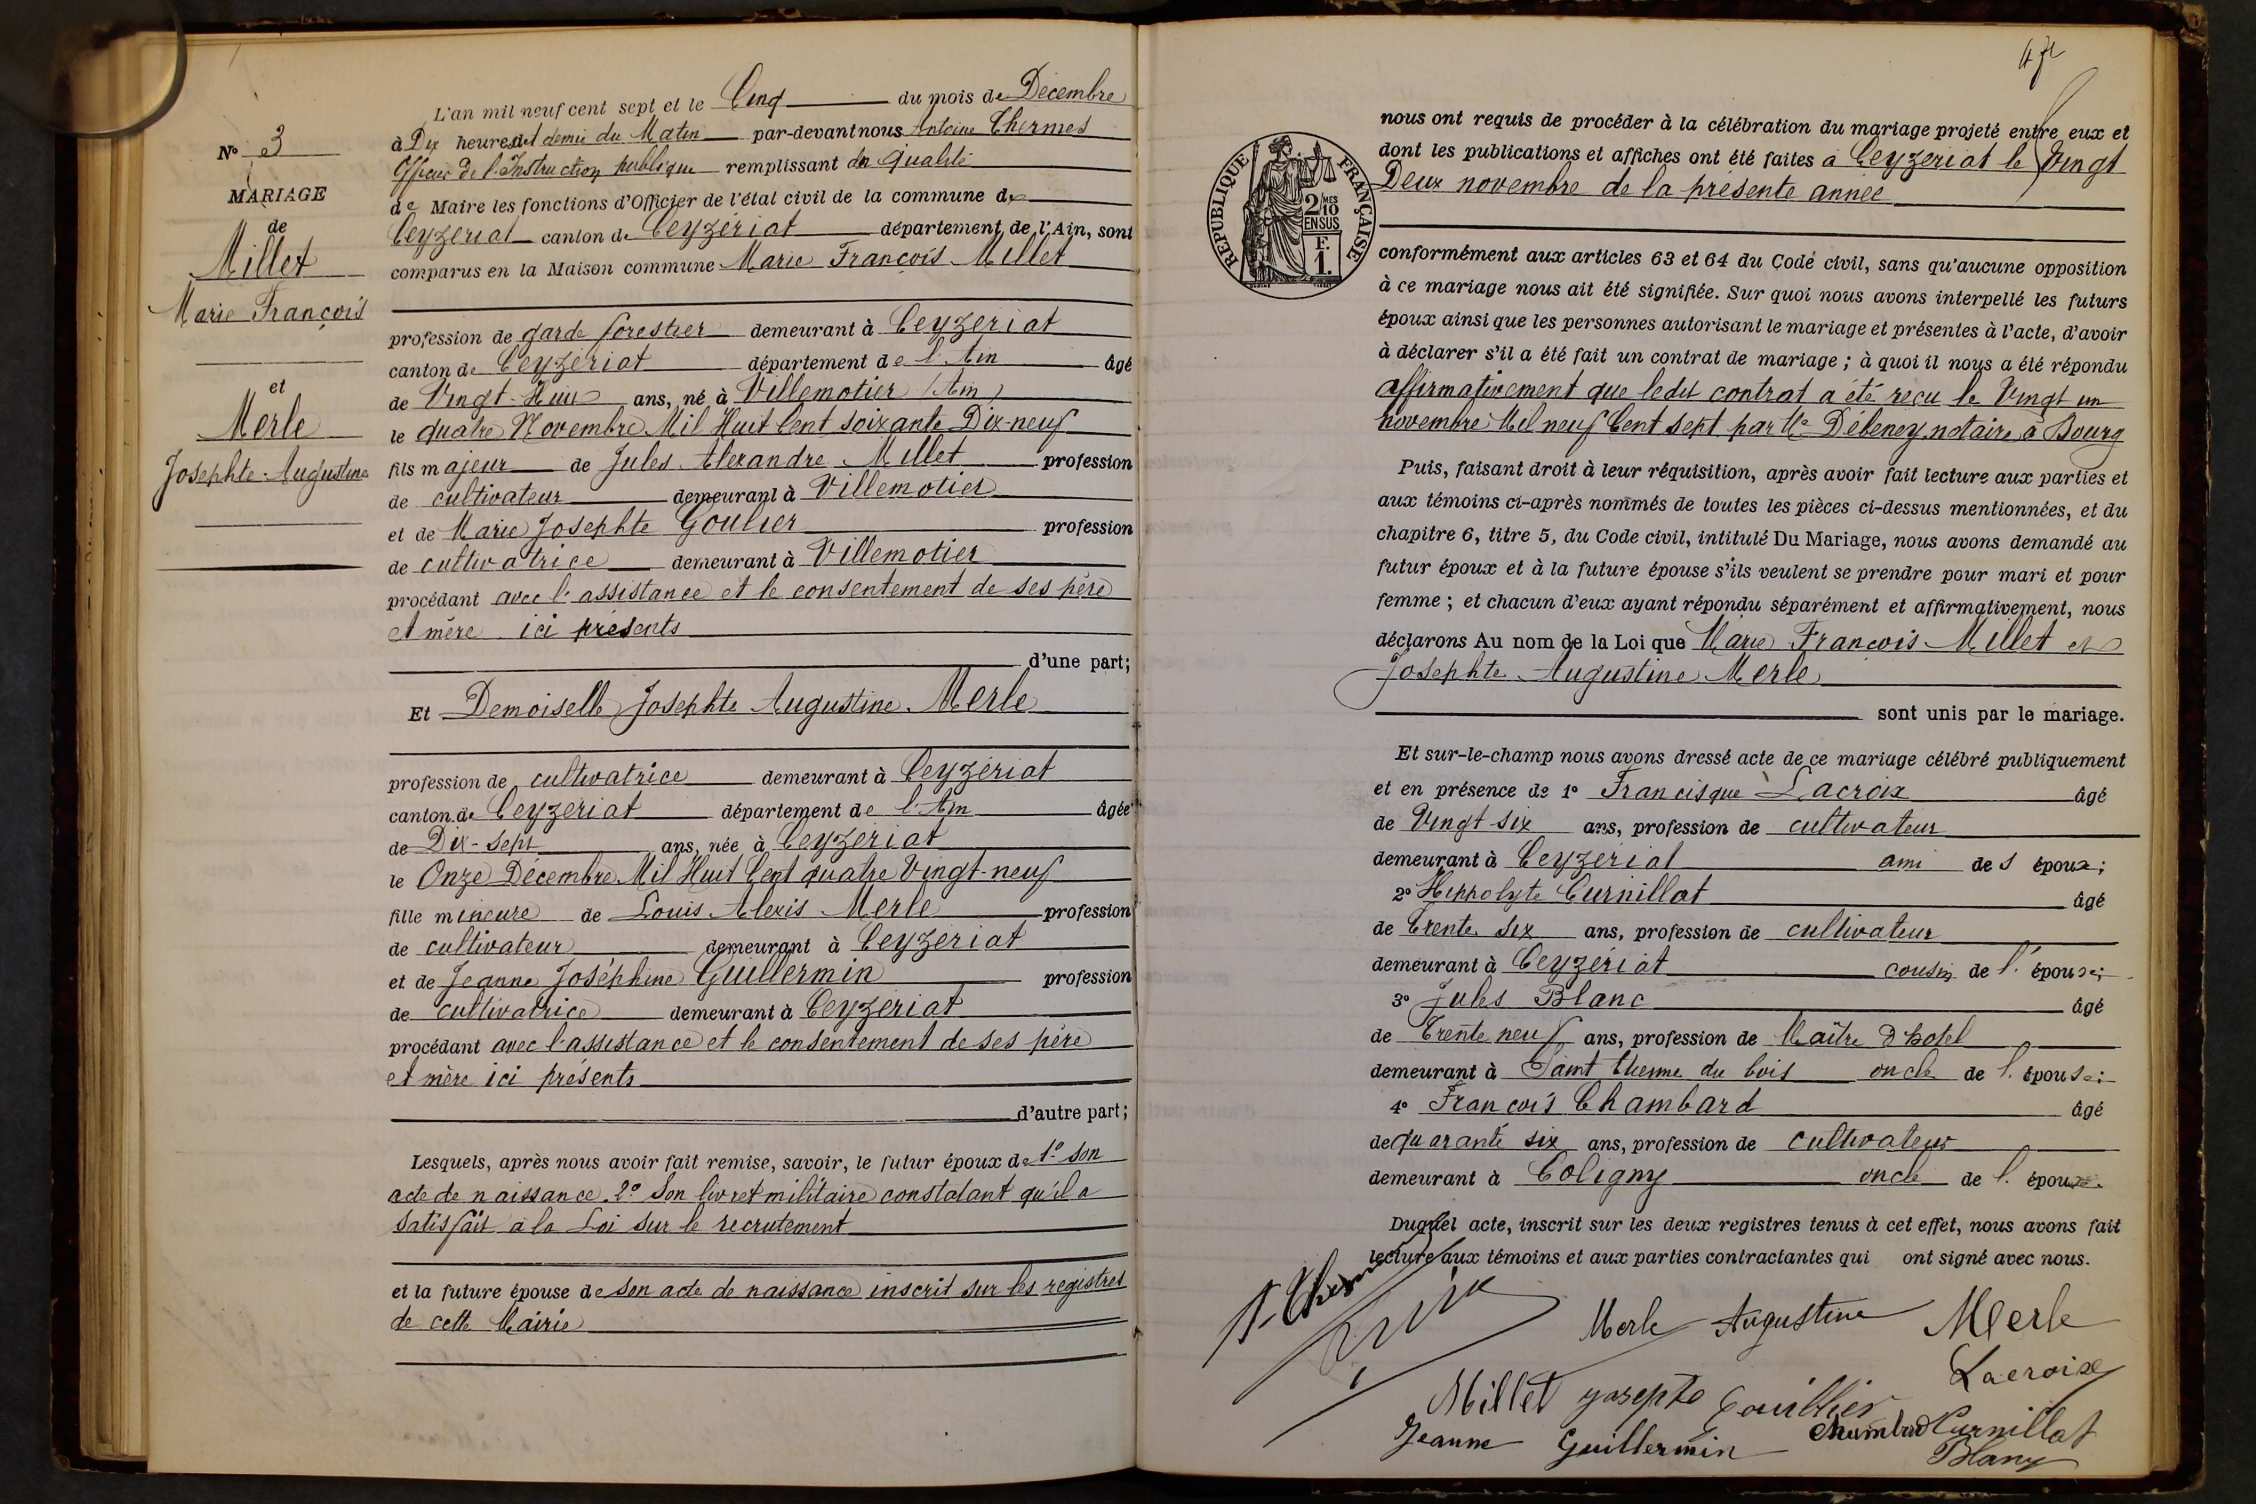 N° 3
MARIAGE
de
Millet
Marie François
et
Merle
Josephte Augustine
L'an mil neuf cent sept et le Cinq du mois de Décembre
à Dix heures et demie du Matin par-devant nous Antoine Chermes
Officier de l'Instruction publique remplissant en qualité
de Maire les fonctions d'Officier de l'état civil de la commune de
Ceyzeriat canton de Ceyzériat département de l'Ain, sont
comparus en la Maison commune Marie François Millet
profession de garde forestier demeurant à Ceyzeriat
canton de Ceyzériat département de l'Ain âgé
de Vingt-Huit ans, né à Villemotier (Ain)
le quatre Novembre Mil Huit Cent soixante Dix-neuf
fils majeur de Jules Alexandre Millet profession
de cultivateur demeurant à Villemotier
et de Marie Josephte Goulier profession
de cultivatrice demeurant à Villemotier
procédant avec l'assistance et le consentement de ses père
et mère ici présents
d'une part;
Et Demoiselle Josephte Augustine Merle
profession de cultivatrice demeurant à Ceyzériat
canton de Ceyzeriat département de l'Ain âgée
de Dix-sept ans, née à Ceyzeriat
le Onze Décembre Mil Huit Cent quatre Vingt-neuf
fille mineure de Louis Alexis Merle profession
de cultivateur demeurant à Ceyzeriat
et de Jeanne Joséphine Guillermin profession
de cultivatrice demeurant à Ceyzeriat
procédant avec l'assistance et le consentement de ses père
et mère ici présents
d'autre part;
Lesquels, après nous avoir fait remise, savoir, le futur époux de 1° son
acte de naissance 2° Son livret militaire constatant qu'il a
satisfait à la Loi sur le recrutement
et la future épouse de son acte de naissance inscrit sur les registres
de cette Mairie
RÉPUBLIQUE FRANÇAISE
2 MES
10
EN SUS
F.
1.
nous ont requis de procéder à la célébration du mariage projeté entre eux et
dont les publications et affiches ont été faites à Ceyzeriat le Vingt
Deux novembre de la présente année
conformément aux articles 63 et 64 du Code civil, sans qu'aucune opposition
à ce mariage nous ait été signifiée. Sur quoi nous avons interpellé les futurs
époux ainsi que les personnes autorisant le mariage et présentes à l'acte, d'avoir
à déclarer s'il a été fait un contrat de mariage; à quoi il nous a été répondu
affirmativement que ledit contrat a été reçu le Vingt un
novembre Mil neuf Cent sept par Me Débeney notaire à Bourg
Puis, faisant droit à leur réquisition, après avoir fait lecture aux parties et
aux témoins ci-après nommés de toutes les pièces ci-dessus mentionnées, et du
chapitre 6, titre 5, du Code civil, intitulé Du Mariage, nous avons demandé au
futur époux et à la future épouse s'ils veulent se prendre pour mari et pour
femme; et chacun d'eux ayant répondu séparément et affirmativement, nous
déclarons Au nom de la Loi que Marie François Millet et
Josephte Augustine Merle
sont unis par le mariage.
Et sur-le-champ nous avons dressé acte de ce mariage célébré publiquement
et en présence de 1° Francisque Lacroix âgé
de Vingt six ans, profession de cultivateur
demeurant à Ceyzériat ami des époux;
2° Hippolyte Curnillat âgé
de Trente six ans, profession de cultivateur
demeurant à Ceyzériat cousin de l'épouse;
3° Jules Blanc âgé
de Trente neuf ans, profession de Maître d'hotel
demeurant à Saint Etienne du bois oncle de l'épouse;
4° François Chambard âgé
de quarante six ans, profession de cultivateur
demeurant à Coligny oncle de l'époux.
Duquel acte, inscrit sur les deux registres tenus à cet effet, nous avons fait
lecture aux témoins et aux parties contractantes qui ont signé avec nous.
Merle Augustine Merle
Lacroix
Millet Josepte Gouillier
Jeanne Guillermin Chambard Curnillat
Blanc